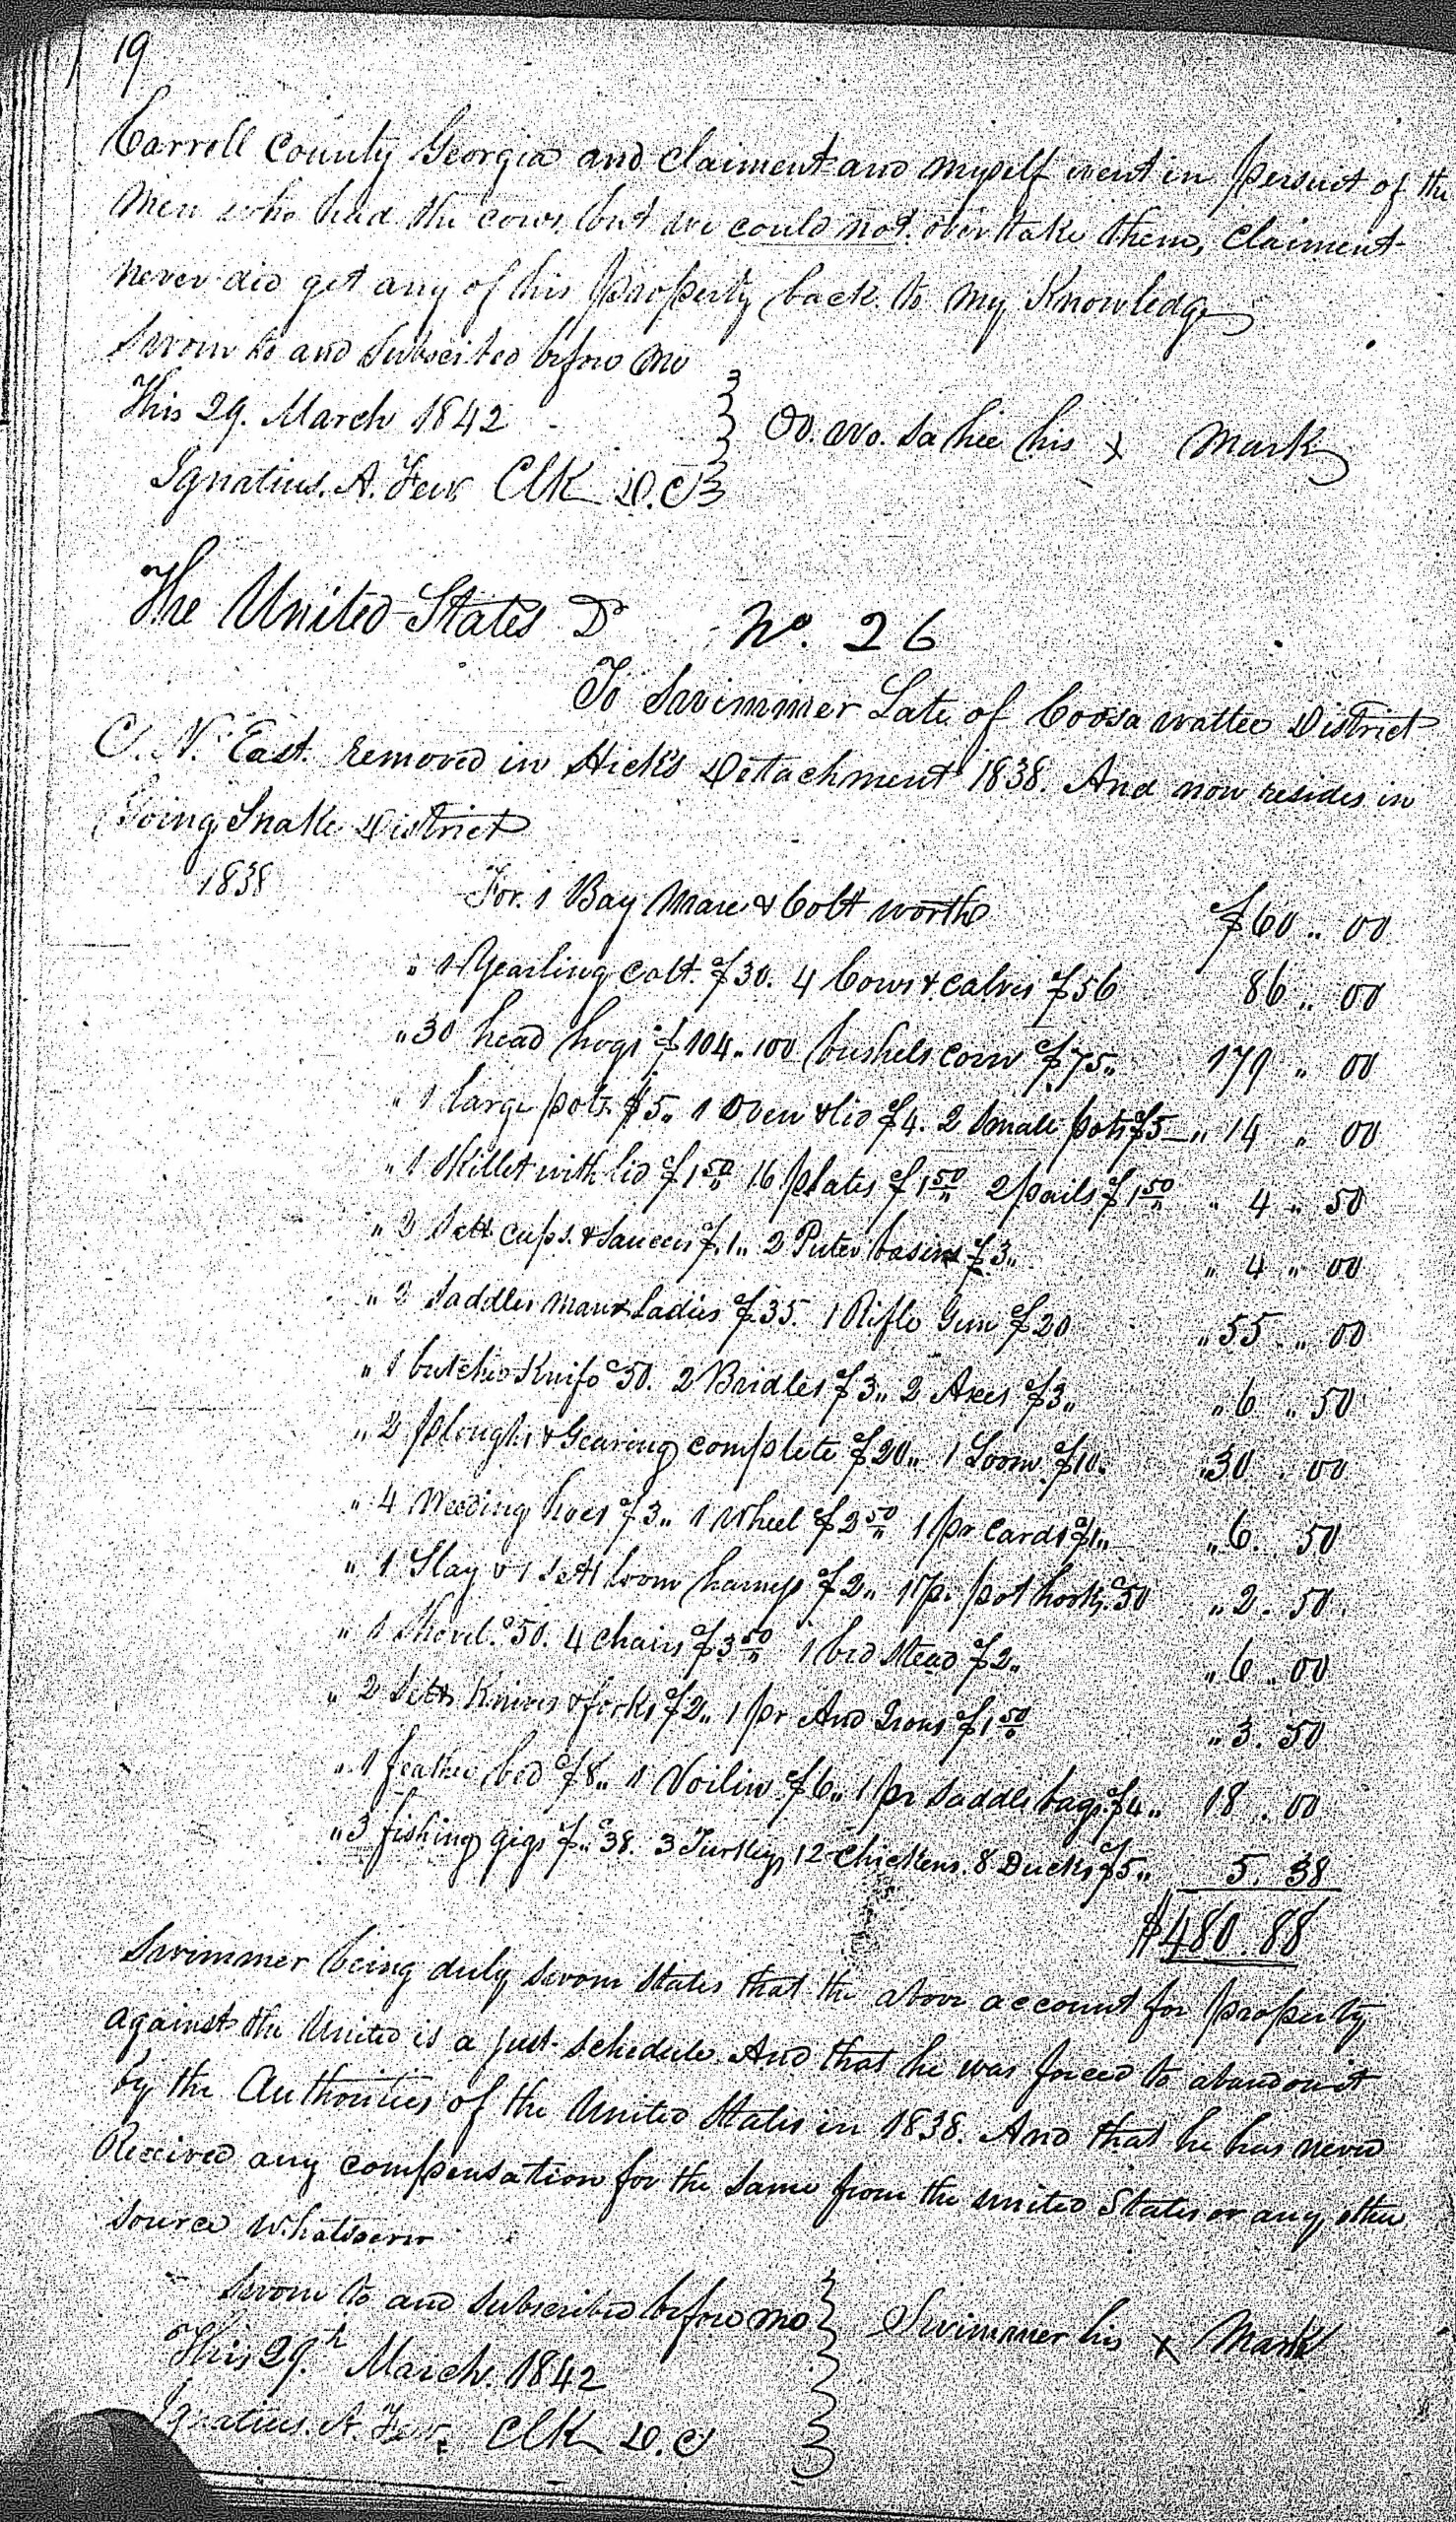 19
Carroll County Georgia and claiment and myself went in persuit of the
men who had the cows, but we could not over take them, Claiment
never did get any of his property back to my Knowledge
Sworn to and Subscribed before me
This 29. March 1842
Ignatius. A. Few Clk D.C
his x mark
The United States Dr No. 26
To Swimmer Late of Coosawattee District
C. N. East. removed in Hicks Detachment 1838. And now resides in
Going Snake District
1838 For. 1 Bay Mare & Colt worth $60 .. 00
" 1 Yearling Colt. $30. 4 Cows & Calves $56 86 .. 00
" 30 head hogs $104 .. 100 bushels corn $75 .. 179 " 00
" 1 large pots $5 .. 1 Oven & lid $4. 2 Small pots $5 — " 14 " 00
" 1 Skillet with lid $1 50 16 plates $1 50 2 pails $1 50 " 4 " 50
" 2 Sett Cups. & Saucers $.1 .. 2 Puter basins $3 .. " 4 " 00
" 2 Saddles mans & Ladies $35. 1 Rifle Gun $20 " 55 .. 00
" 1 butcher Knife c50. 2 Bridles $3 .. 2 Axes $3 .. " 6 " 50
" 2 ploughs & Gearing complete $20 .. 1 Loom $10. " 30 . 00
" 4 Weeding hoes $3 .. 1 Wheel $2 50 1 pr Cards $1 .. " 6 . 50
" 1 Slay & 1 Sett loom harness $2 .. 1 pr. pot hooks. c50 " 2 . 50
" 1 Shovel. c50. 4 Chairs $3 50 1 bed Stead $2 .. " 6 .. 00
" 2 Setts Knives & forks $2 .. 1 pr And Irons $1 50 " 3 . 50
" 1 feather bed $8 .. 1 Voilin $6 .. 1 pr saddle bags $4 .. 18 . 00
" 3 fishing gigs $ .. c38. 3 Turkeys 12 chickens. 8 Ducks $5 .. 5 . 38
$480.88
Swimmer being duly sworn states that the above account for property
against the United is a just schedule And that he was forced to abandon it
by the Authorities of the United States in 1838. And that he has never
Received any compensation for the same from the united States or any other
source whatsoever
Sworn to and subscribed before me
This 29.th March. 1842
Ignatius. A. Few. Clk D. C
Swimmer his x Mark